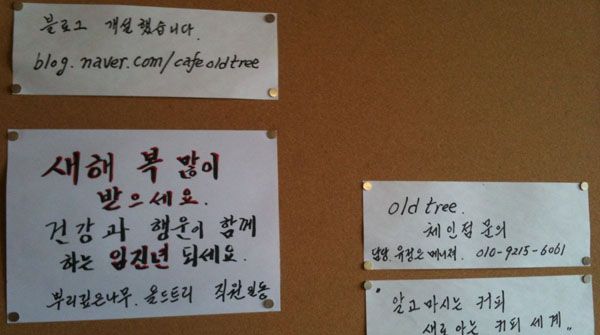 블로그 개설했습니다.
blog.naver.com/cafeoldtree
새해 복 많이
받으세요.
건강과 행운이 함께
하는 임진년 되세요.
뿌리깊은나무. 올드트리 직원일동
old tree.
체인점 문의
담당. 유정은 매니져. 010-9215-6061
"알고 마시는 커피
새로 아는 커피 세계"